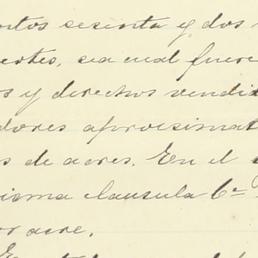 entos sesenta y dos
uertes, sea cual fuere
os y derechos vendi
dores aprocsimat
s de acres. En el
isma clausula 6ª
or acre.